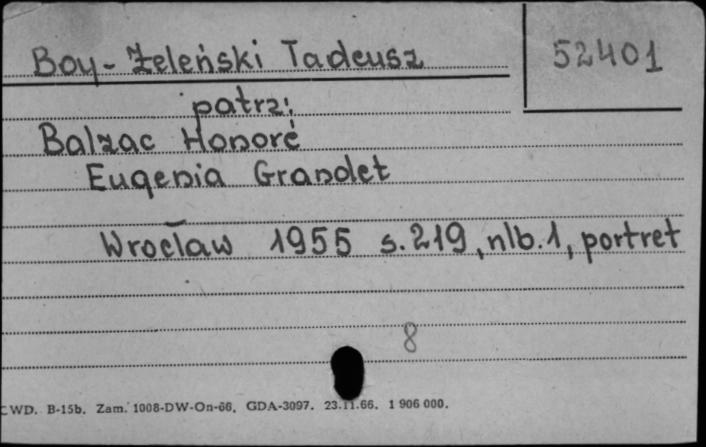 Boy-Żeleński Tadeusz
52401
patrz:
Balzac Honoré
Eugenia Grandet
Wrocław 1955 s.219, nlb.1, portret
8
CWD. B-15b. Zam. 1008-DW-On-66. GDA-3097. 23.11.66. 1 906 000.